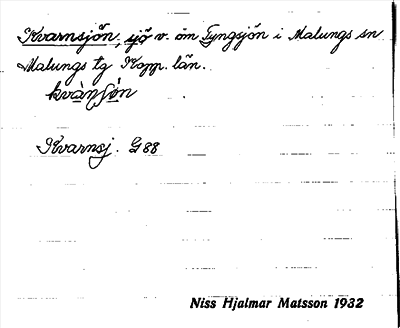 Kvarnsjön, sjö v. om Tyngsjön i Malungs sn
Malungs tg Kopp. län.
kvà̀ṇʃó̀n
Kvarnsj. G 88
Niss Hjalmar Matsson 1932